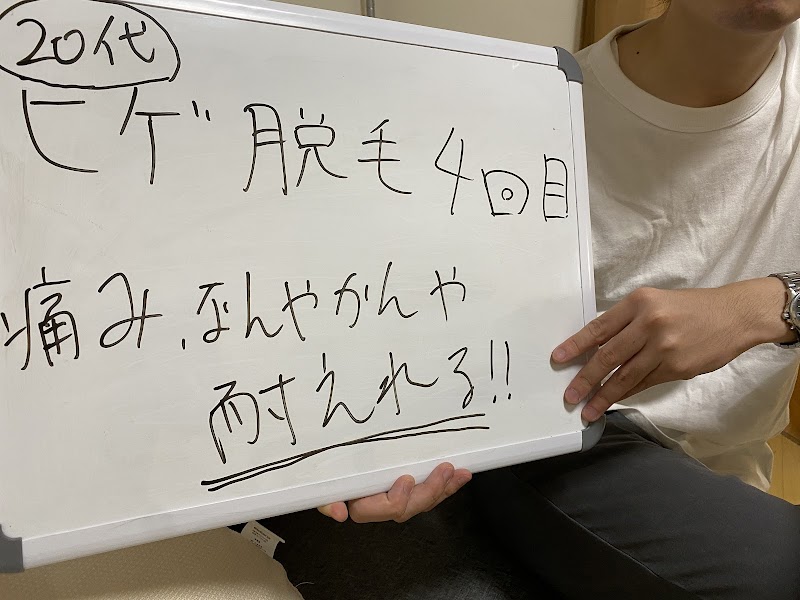 20代
ヒゲ脱毛4回目
痛み、なんやかんや
耐えれる!!